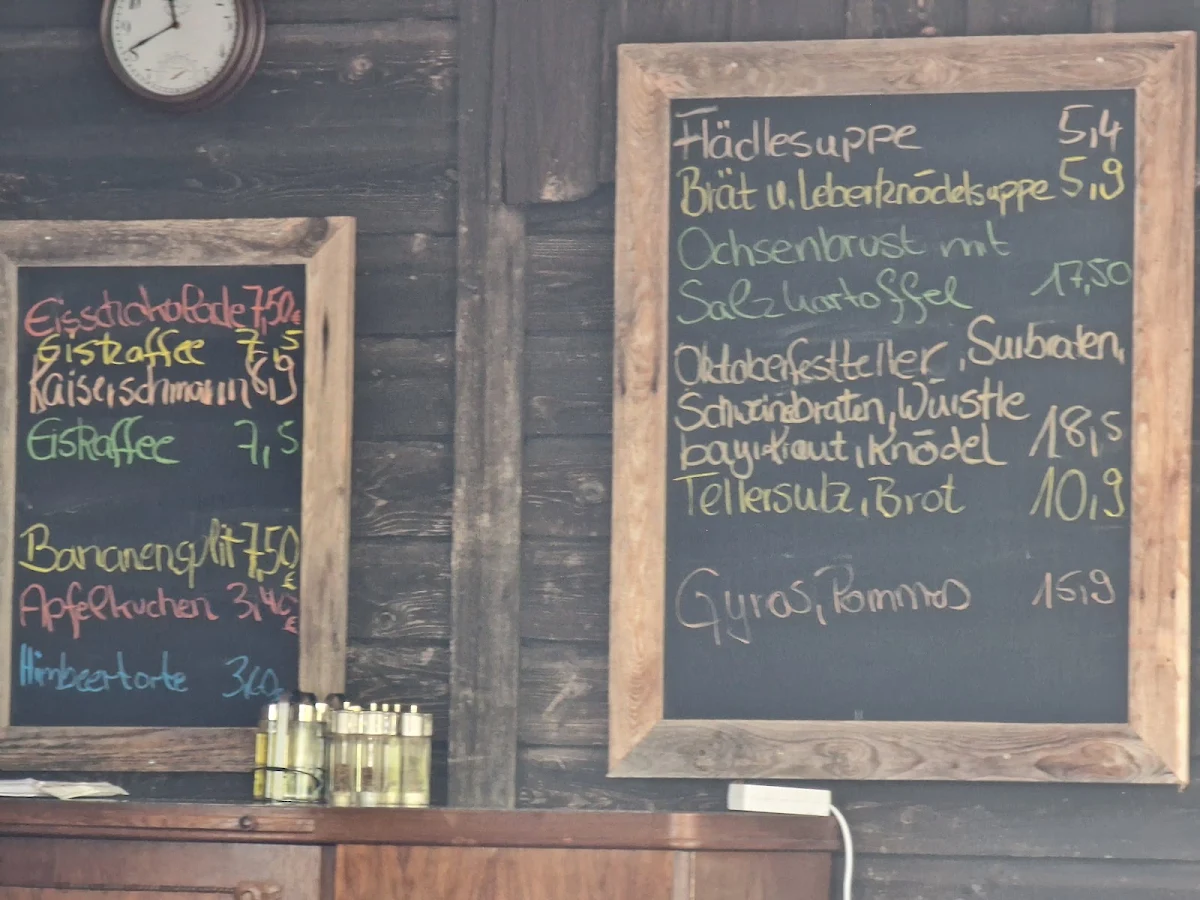 Eisschokolade 7,50€
Eiskaffee 7,5
Kaiserschmarrn 6,9
Eiskaffee 7,5
Bananensplit 7,50 €
Apfelkuchen 3,40 €
Himbeertorte 3,60
Flädlesuppe 5,4
Brät u. Leberknödelsuppe 5,9
Ochsenbrust mit
Salzkartoffel 17,50
Oktoberfestteller, Surbraten,
Schweinebraten, Würstle
bayr. Kraut, Knödel 18,5
Tellersulz, Brot 10,9
Gyros, Pommes 15,9